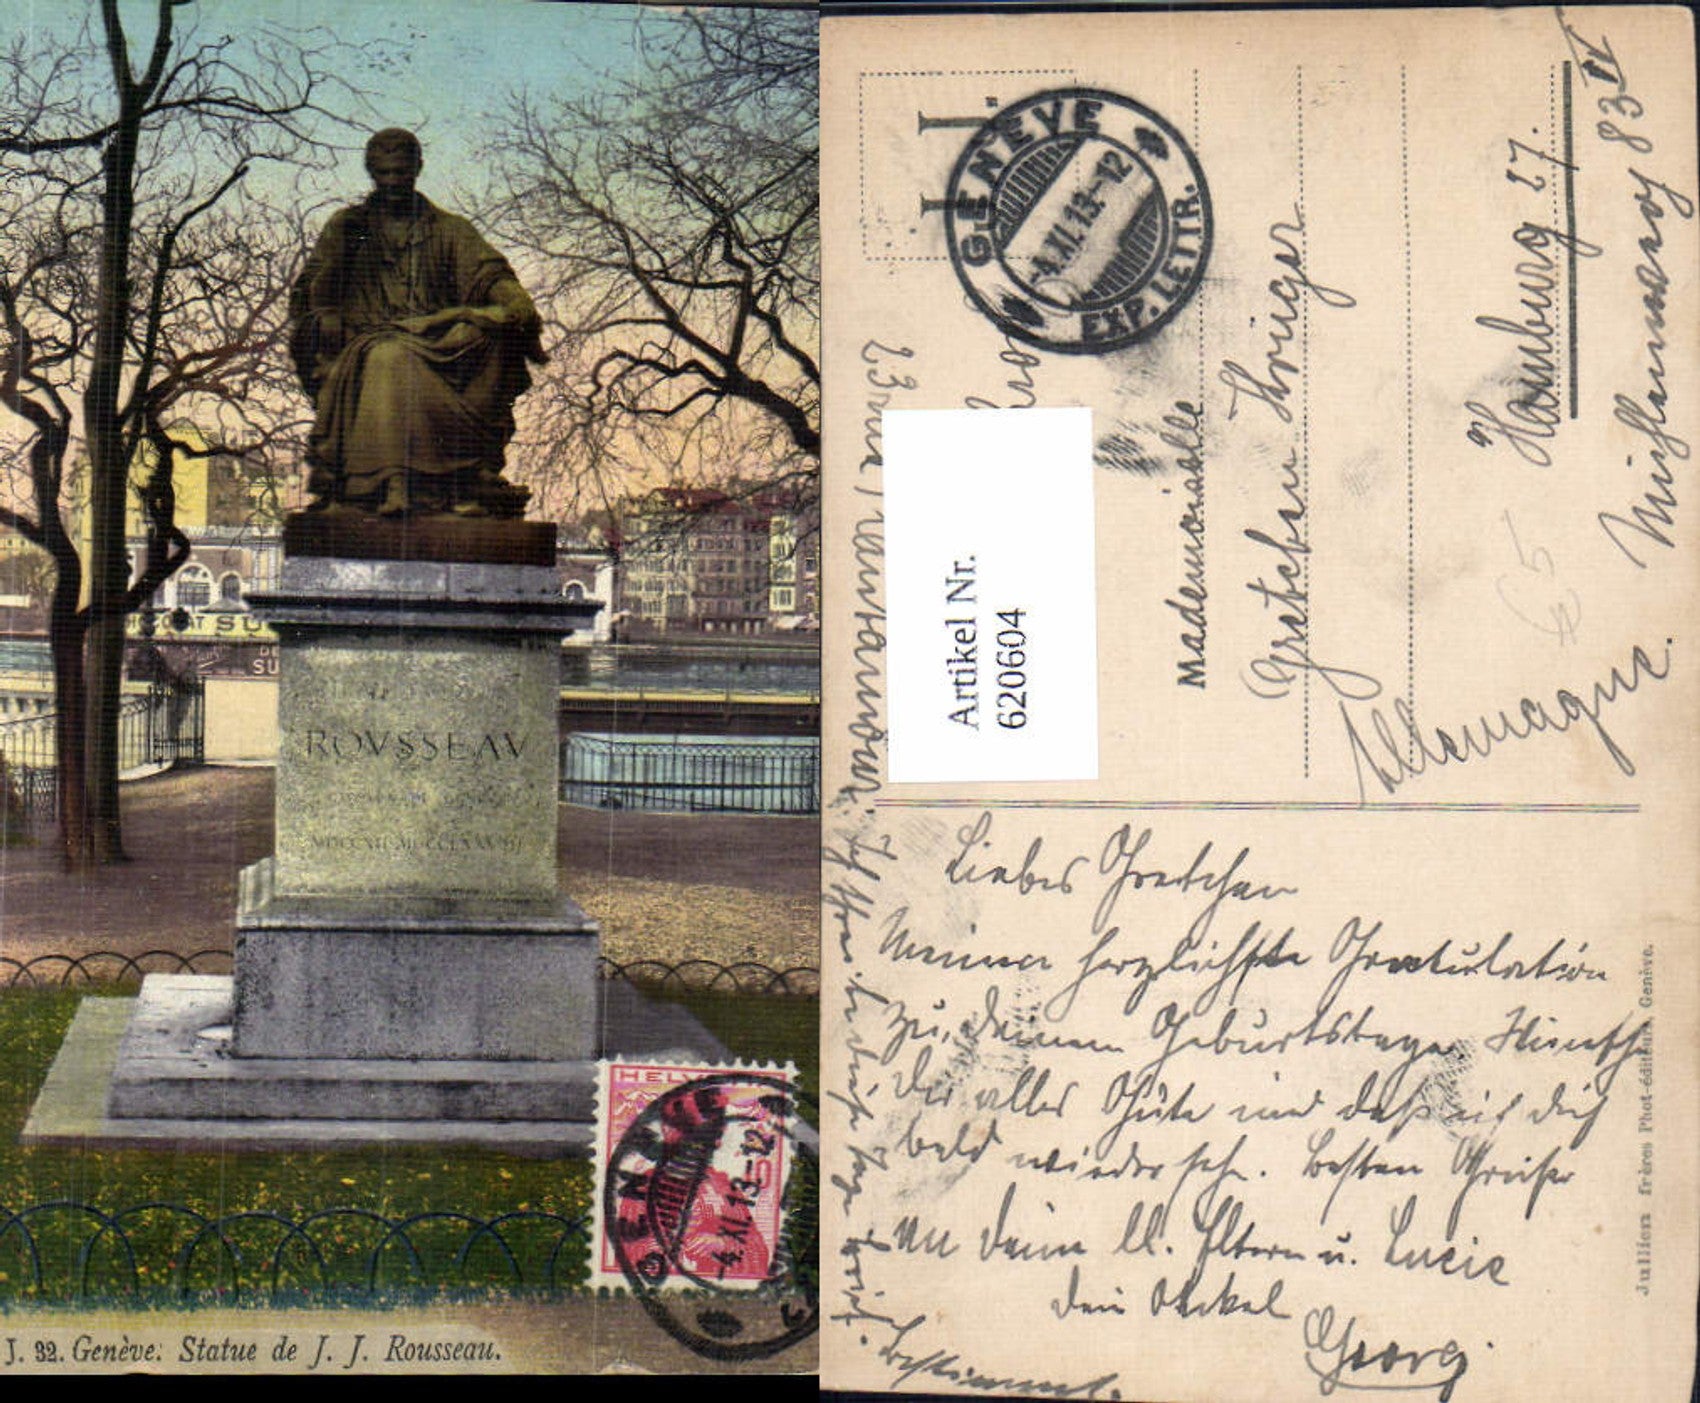 CHOCOLAT SU
DE
SU
ROVSSEAV
HELVETIA
GENÈVE
-4.XI.13.-12
J. 32. Genève: Statue de J. J. Rousseau.
GENÈVE
-4.XI.13.-12
EXP. LETTR.
Artikel Nr.
620604
Mademoiselle
Gretchen Krüger
in Hamburg 27.
83 IV
Allemagne.
€5
Liebes Gretchen
Meinen herzlichste Gratulation
zu deinem Geburtstage. Wünsche
Dir alles Gute und daß ich dich
bald wieder sehe. Besten Grüße
an deine lb. Eltern u. Lucie
dein Onkel
Georg
Jullien frères Phot-éditeurs, Genève.